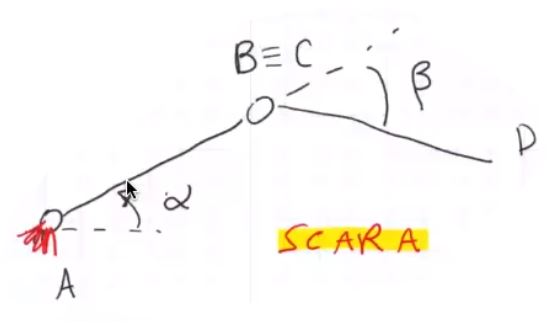 B≡C
β
D
α
SCARA
A